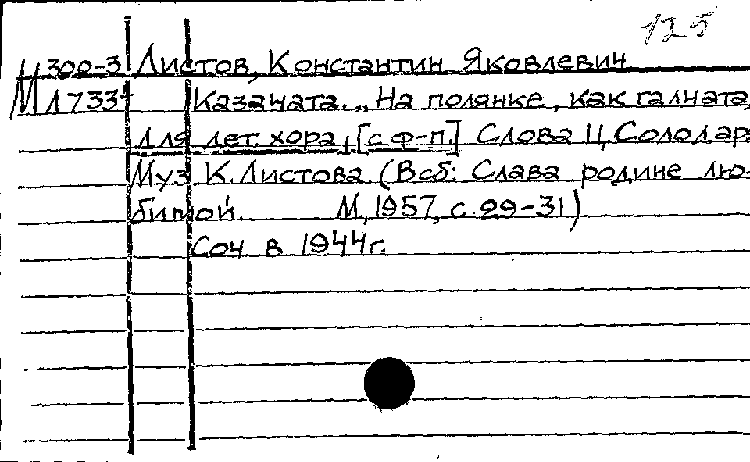 125
Ц300-3 Листов, Константин Яковлевич
М17334 Казачата. „На полянке, как галчата
для дет. хора, [с ф-п.] Слова Ц. Солодар
Муз К. Листова (В сб: Слава родине лю-
бимой. М, 1957, с. 29-31)
Соч в 1944г.